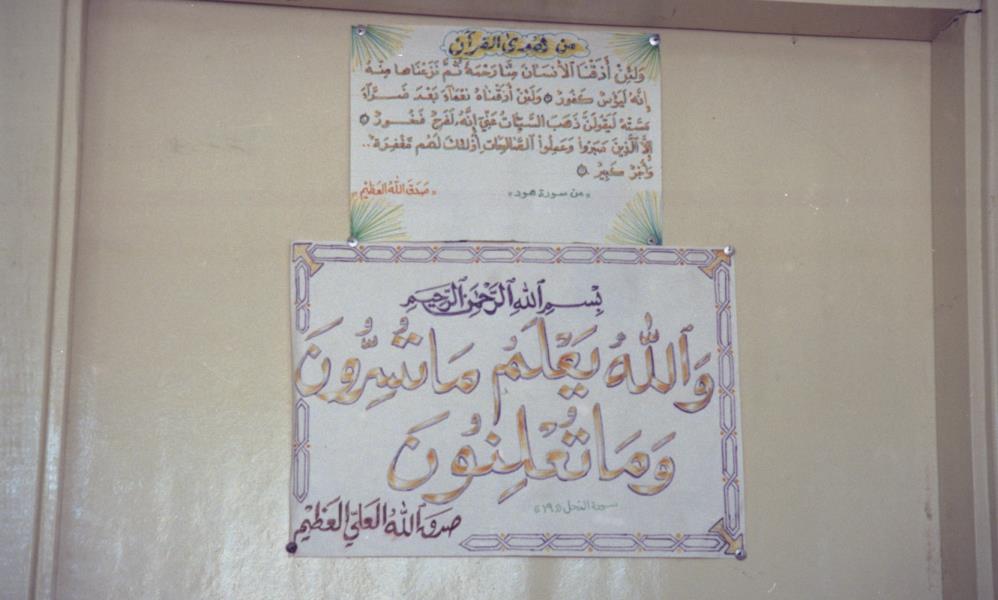 من هدى القرآن
وَلَئِنْ أَذَقْنَا الْأنسَانَ مِنَّا رَحْمَةً ثُمَّ نَزَعْنَاهَا مِنْهُ
إِنَّهُ لَيَؤُسٌ كَفُورٌ وَلَئِنْ أَذَقْنَاهُ نَعْمَآءَ بَعْدَ ضَرَّآءَ
مَسَّتْهُ لَيَقُولَنَّ ذَهَبَ السَّيِّئَاتُ عَنِّي إِنَّهُ لَفَرِحٌ فَخُورٌ
إِلاَّ الَّذِينَ صَبَرُوا وَعَمِلُوا الصَّالِحَاتِ أُوْلَئِكَ لَهُم مَّغْفِرَةٌ..
وَأَجْرٌ كَبِيرٌ
«من سورة هود» «صَدَقَ اللهُ العَظِيْم»
بِسْمِ اللهِ الرَّحْمَنِ الرَّحِيمِ
وَاللَّهُ يَعْلَمُ مَا تُسِرُّونَ
وَمَا تُعْلِنُونَ
سورة النحل «١٩»
صدق اللهُ العَلِيّ العَظِيْم